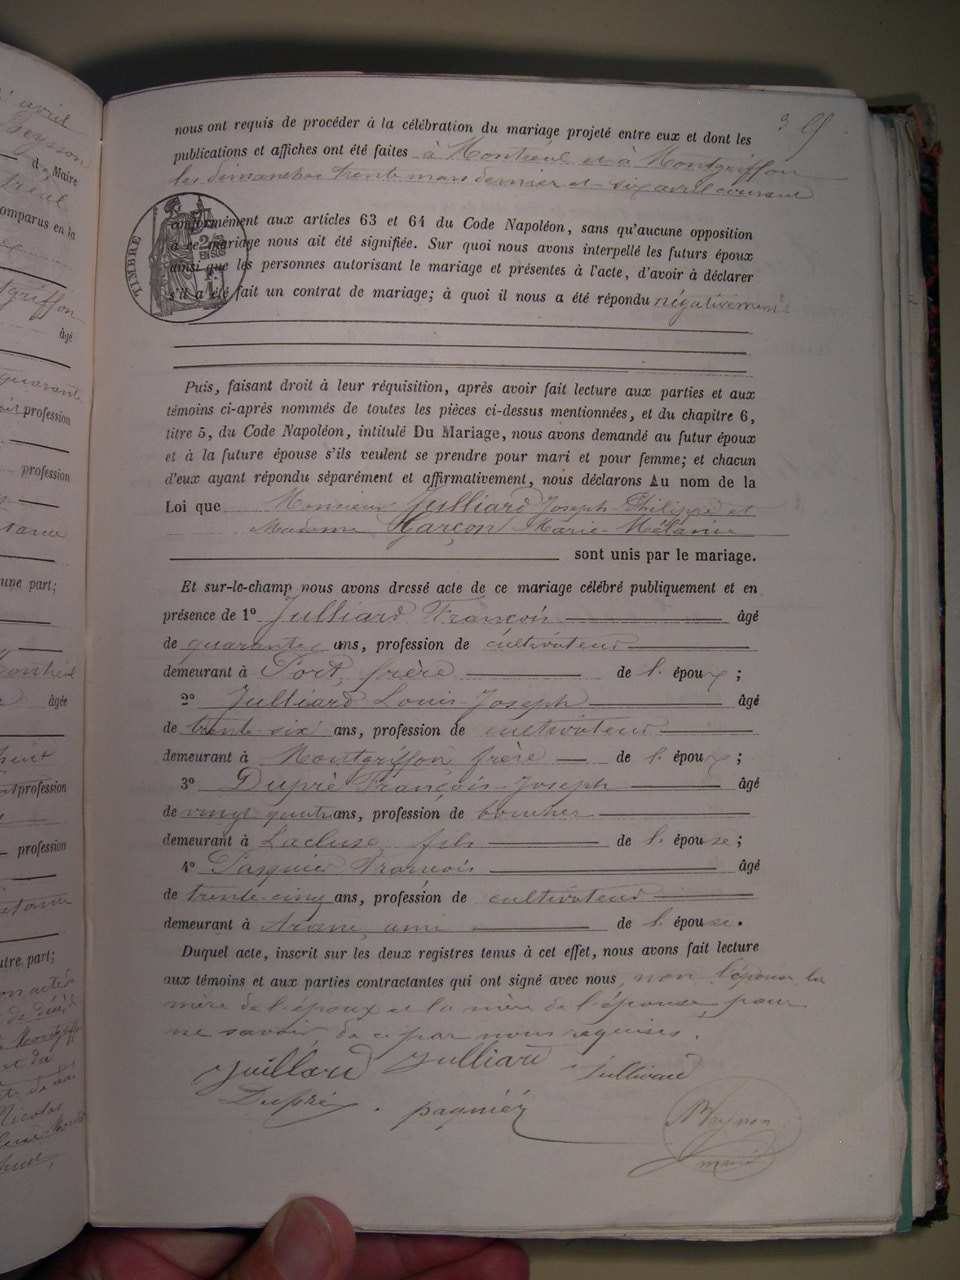 avril
Teysson
d. Maire
comparus en la
tgriffon
âgé
quarante
profession
profession
une part;
âgée
profession
profession
utre part;
on actes
de décès
Montgriffon
et du
Nicolas
nous ont requis de procéder à la célébration du mariage projeté entre eux et dont les
publications et affiches ont été faites à Montreul et à Montgriffon
les dimanches trente mars dernier et six avril courant
TIMBRE
conformément aux articles 63 et 64 du Code Napoléon, sans qu'aucune opposition
à ce mariage nous ait été signifiée. Sur quoi nous avons interpellé les futurs époux
ainsi que les personnes autorisant le mariage et présentes à l'acte, d'avoir à déclarer
s'il a été fait un contrat de mariage; à quoi il nous a été répondu négativement
Puis, faisant droit à leur réquisition, après avoir fait lecture aux parties et aux
témoins ci-après nommés de toutes les pièces ci-dessus mentionnées, et du chapitre 6,
titre 5, du Code Napoléon, intitulé Du Mariage, nous avons demandé au futur époux
et à la future épouse s'ils veulent se prendre pour mari et pour femme; et chacun
d'eux ayant répondu séparément et affirmativement, nous déclarons Au nom de la
Loi que Monsieur Julliard Joseph-Philippe et
Madame Garçon Marie-Mélanie
sont unis par le mariage.
Et sur-le-champ nous avons dressé acte de ce mariage célébré publiquement et en
présence de 1º Julliard François âgé
de quarante ans, profession de cultivateur
demeurant à Port, frère de l'époux;
2º Julliard Louis-Joseph âgé
de trente-six ans, profession de cultivateur
demeurant à Montgriffon frère de l'époux;
3º Dupré François-Joseph âgé
de vingt quatre ans, profession de boucher
demeurant à Lacluse, fils de l'épouse;
4º Pasquier François âgé
de trente-cinq ans, profession de cultivateur
demeurant à Arane, ami de l'épouse.
Duquel acte, inscrit sur les deux registres tenus à cet effet, nous avons fait lecture
aux témoins et aux parties contractantes qui ont signé avec nous, non l'épouse la
mère de l'époux et la mère de l'épouse, pour
ne savoir de ce par nous requises.
Juillard Julliard Jullivard
Dupré. pagniér
maire